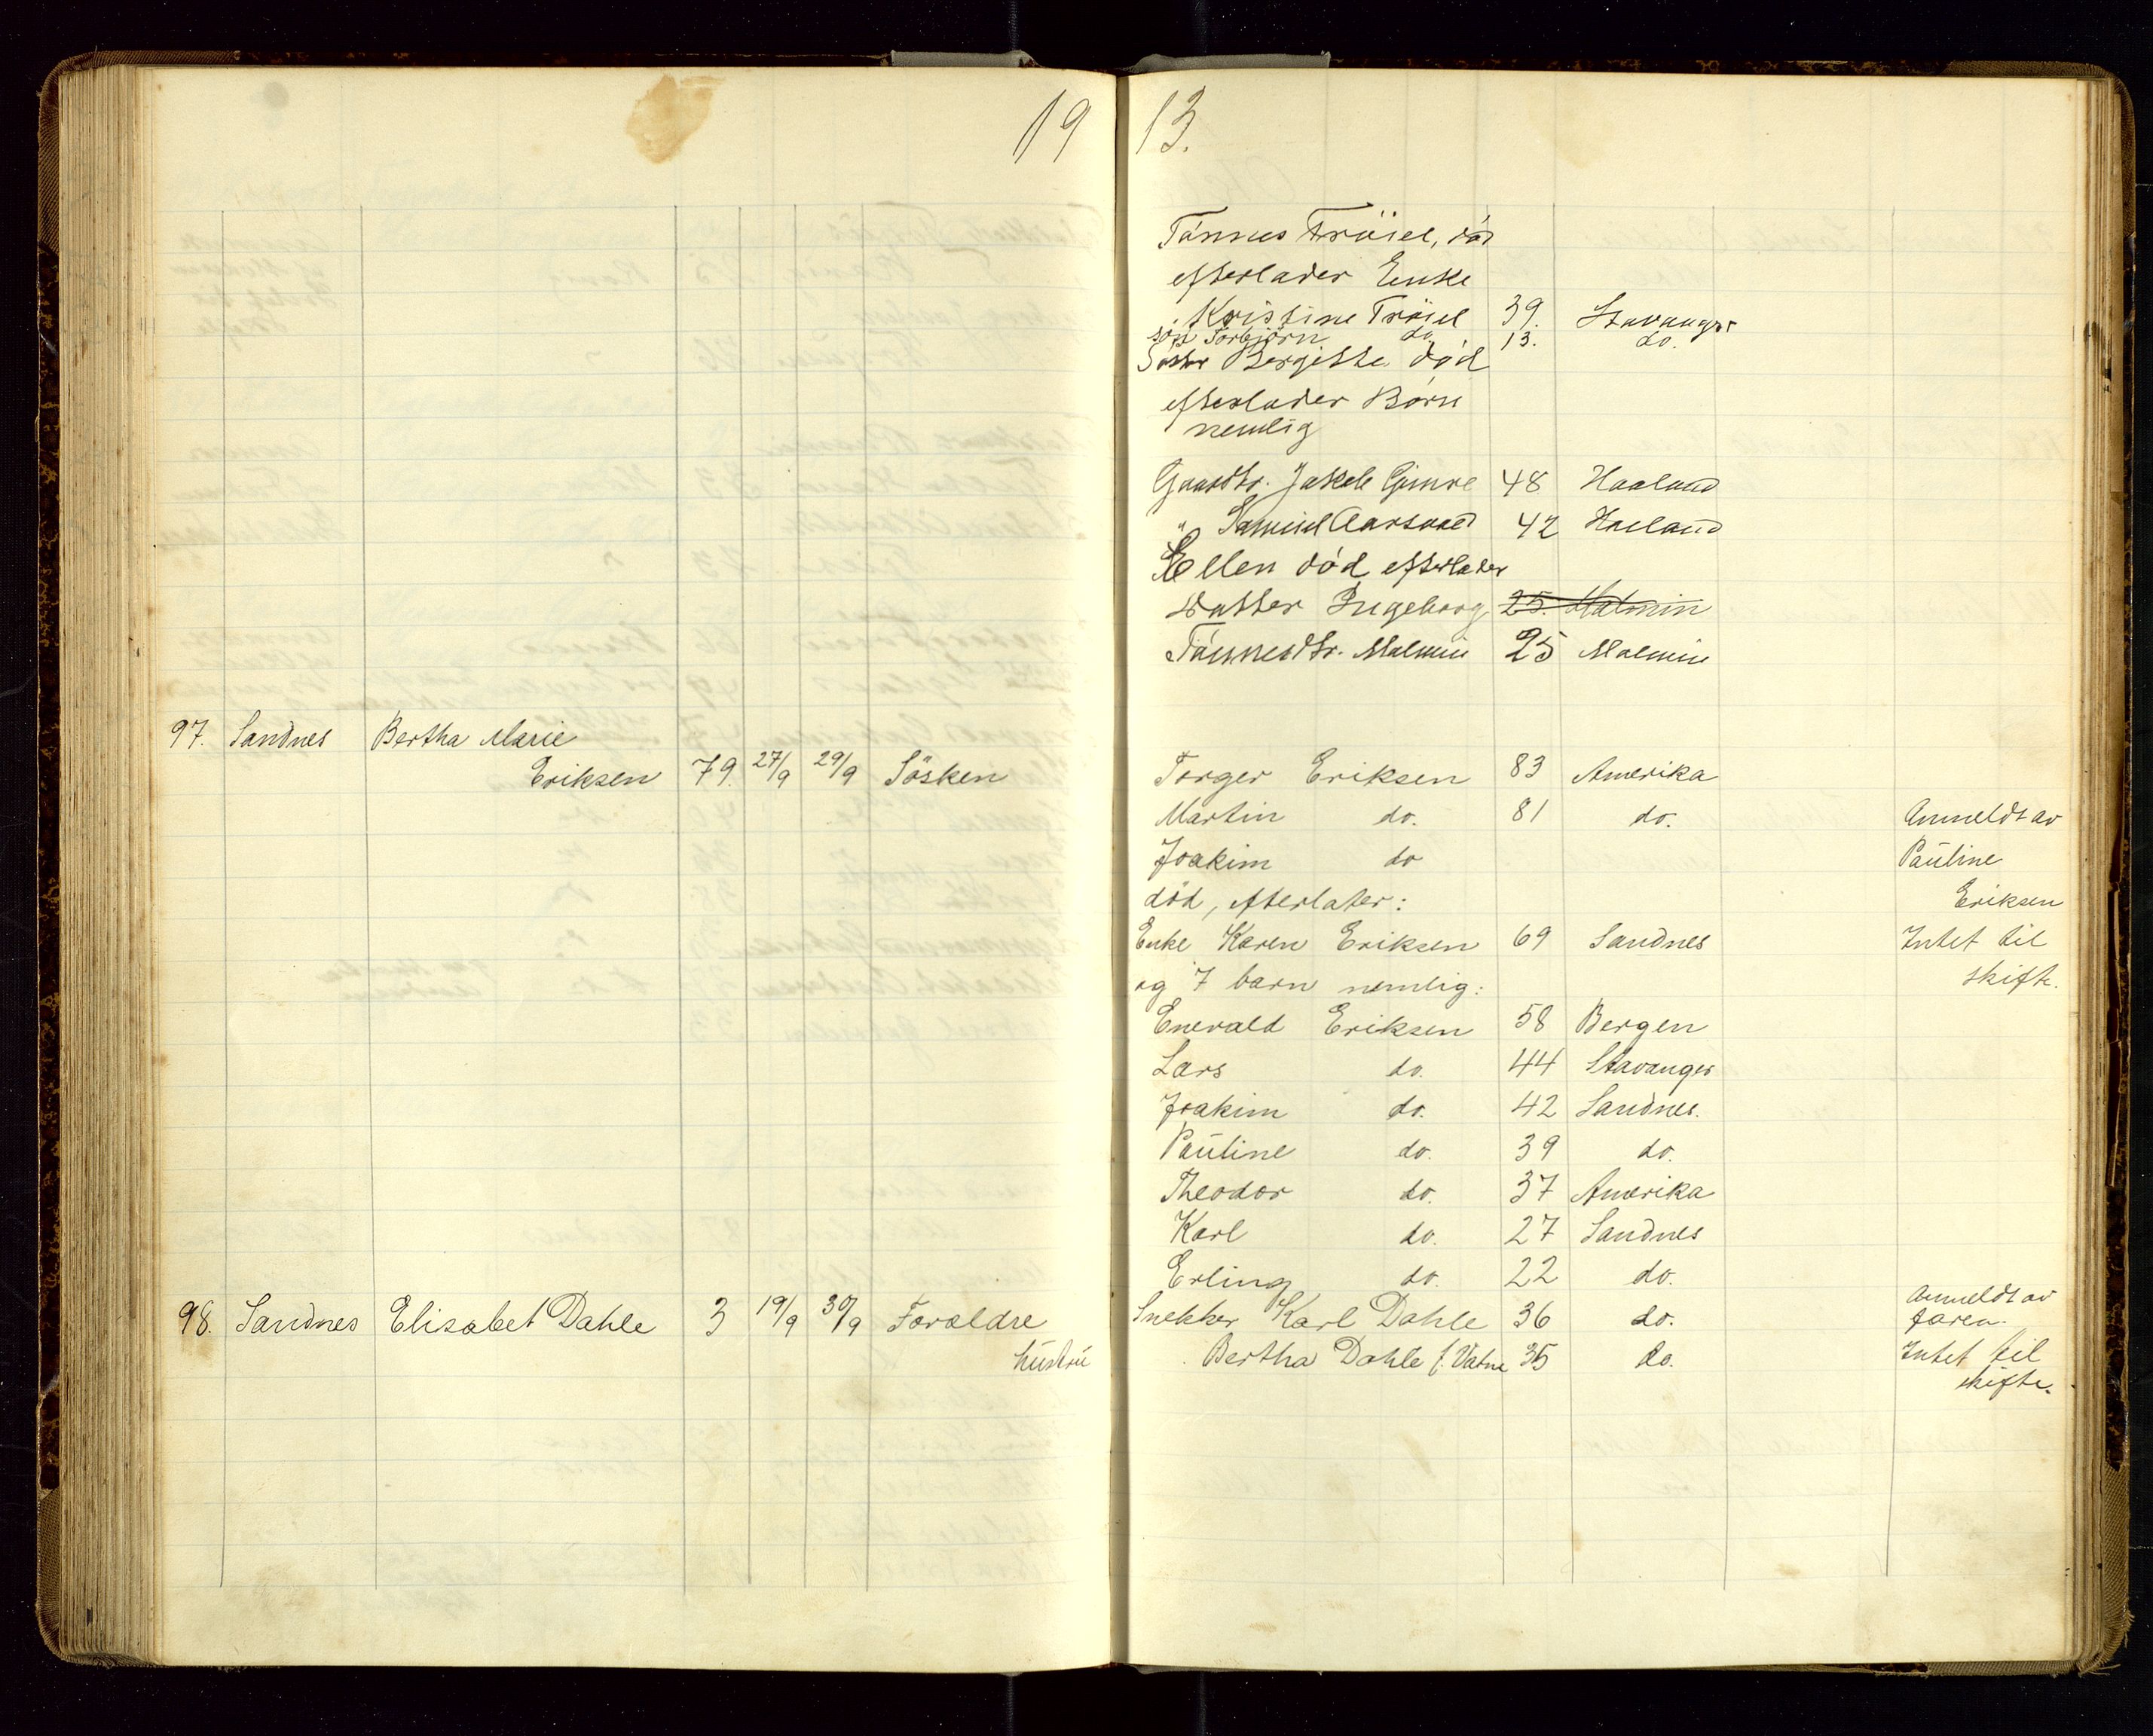 19 13.
Tönnes Tröiel, död
efterlader Enke
Kristine Tröiel 39. Stavanger
søn Torbjörn do 13. do.
Söster Bergitte död
efterlader Börn
nemlig
Gaardbr. Jakob Gimre 48 Haaland
" Samuel Aarsvold 42 Haaland
Ellen död efterlader
datter Ingeborg 25. Malmin
Tönnesdtr. Malmin 25 Malmin
97. Sandnes Bertha Marie
Eriksen 79. 27/9 29/9 Sösken Torger Eriksen 83 Amerika
Martin do. 81 do. Anmeldt av
Joakim do Pauline
död, efterlater: Eriksen
Enke Karen Eriksen 69 Sandnes Intet til
og 7 barn nemlig: skifte.
Enevald Eriksen 58 Bergen
Lars do. 44 Stavanger
Joakim do. 42 Sandnes.
Pauline do. 39 do.
Theodor do. 37 Amerika
Karl do. 27 Sandnes
Erling do. 22 do.
98. Sandnes Elisabet Dahle 3 19/9 30/9 Forældre Snekker Karl Dahle 36 do. Anmeldt av
faren.
hustru Bertha Dahle f. Vatne 35 do. Intet til
skifte.